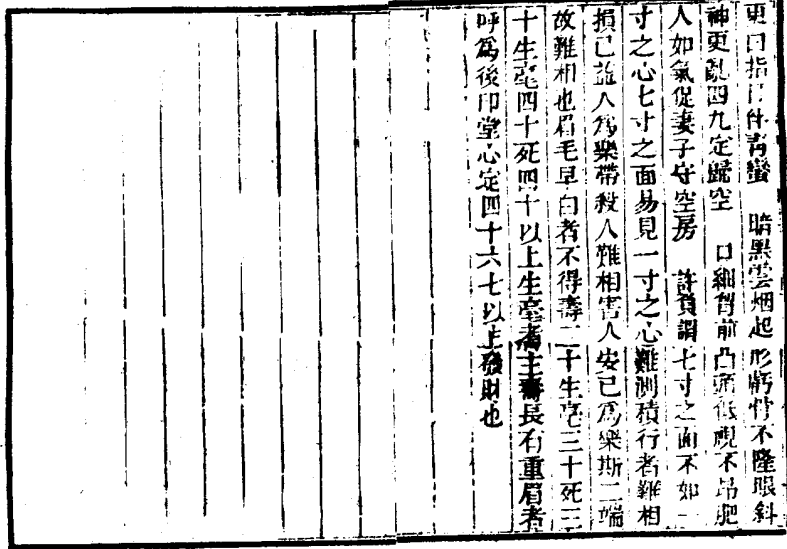 暗黑雲烟起 形 骨不隆眼斜
神更亂四九定歸空 口細 前凸頭低視不昂肥
人如氣促妻子守空房 許負謂七寸之面不如一
寸之心七寸之面易見一寸之心難測積行者難相
損已益人為樂帶殺人難相害人安已為樂斯二端
故難相也眉毛早白者不得壽二十生毫三十死三
十生毫四十死四十以上生毫者主壽長有重眉者
呼為後印堂心定四十六七以上發財也